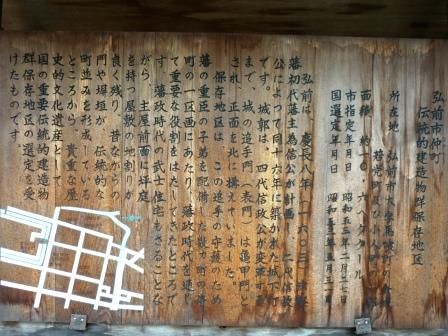 弘前市仲町
伝統的建造物群保存地区
所在地 弘前市大字
若党町及び小人町
面積 約一〇・六ヘクタール
市指定年月日 昭和五三年二月二七日
国選定年月日 昭和五三年五月三一日
弘前は、慶長八年(一六〇三)
藩初代藩主為信公が計画し、二代信枚
公によって同十六年に築かれた城下町
です。城郭は、四代信政公が
まで、城の追手門(表門)は亀甲門と
され、正面を北に構えていました。
保存地区は、この追手の守護のため
藩の重臣の子弟を配備した
町の一区画にあたり、藩政時代を通し
て重要な役割をはたしてきたところで
す。藩政時代の武士住宅もさることな
がら、主屋前面に坪庭
を持つ屋敷の地割
良く残り、昔ながらの
門や塀垣が、伝統的な
町並みを形成している
ところから、貴重な歴
史的文化遺産として
国の重要伝統的建造物
群保存地区の選定を受
けたものです。